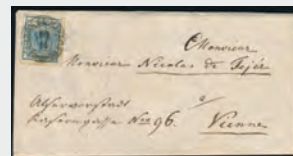 Monsieur
Monsieur Nicolas de Fejér
à
Alservorstadt
Kaserngasse Nro 96.
Vienne